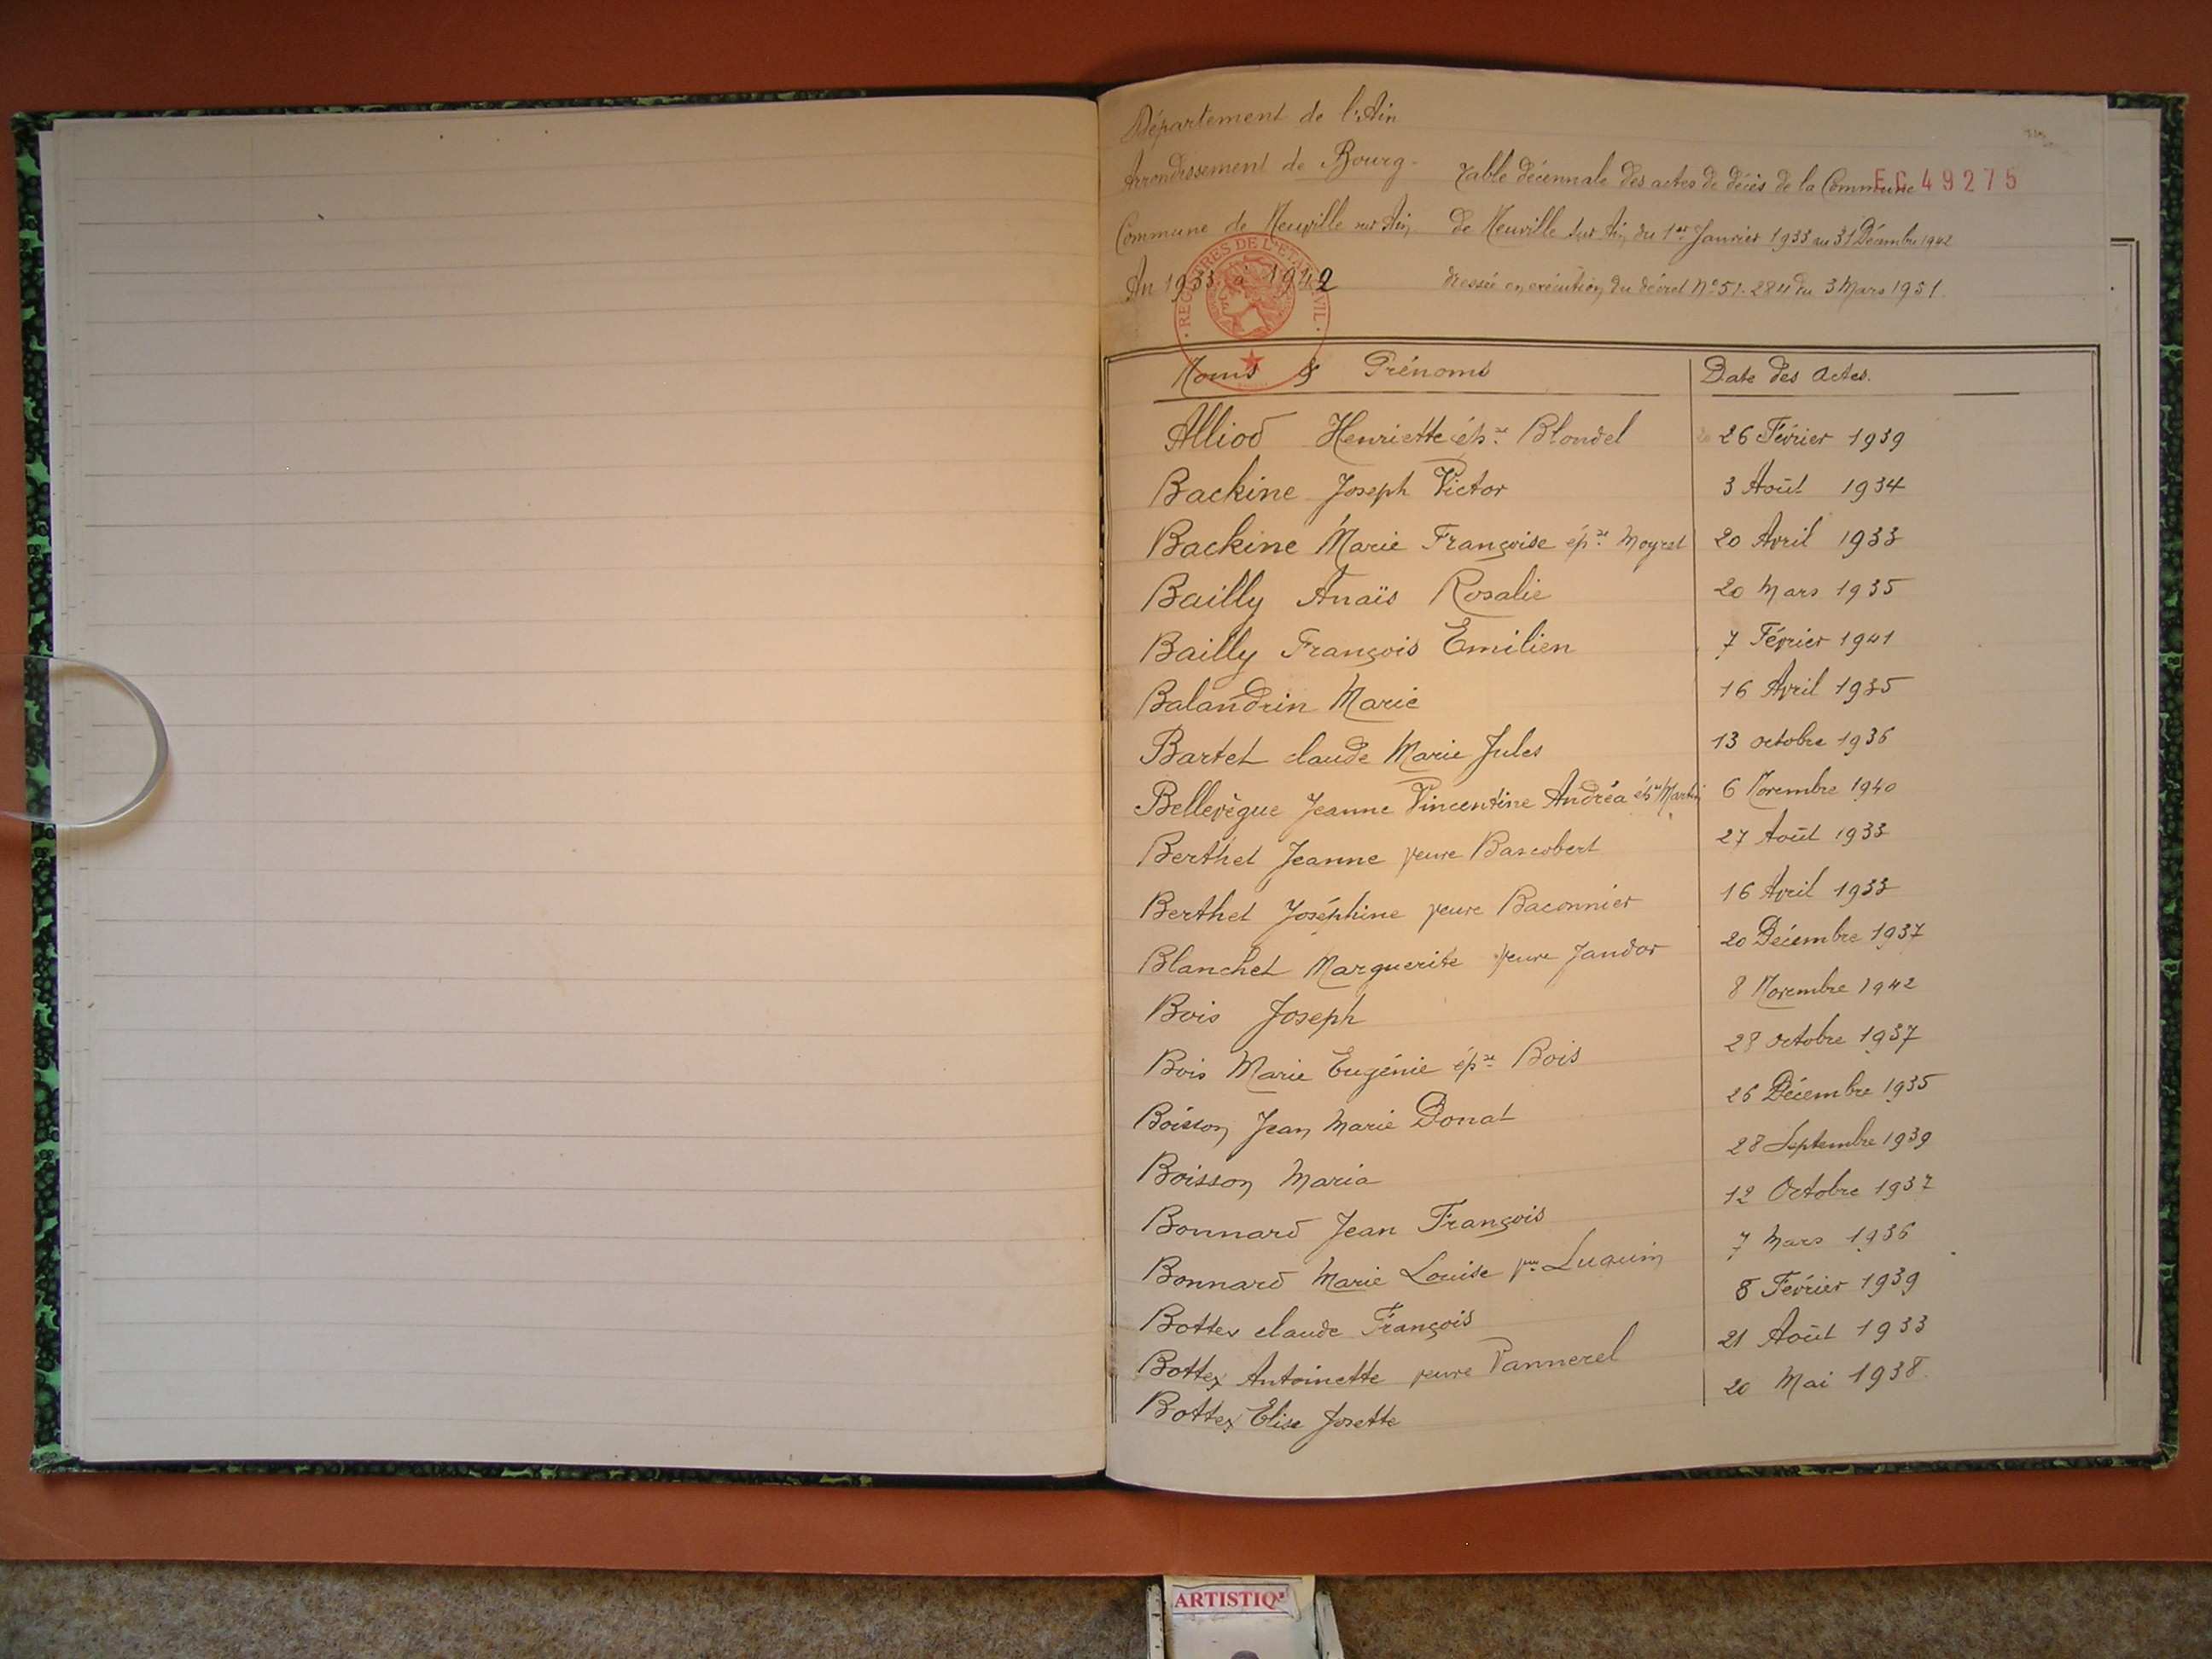 Département de l'Ain
Arrondissement de Bourg-
Commune de Neuville sur Ain
An 1933 à 1942
Table décennale des actes de décès de la Commune
EC 49275
de Neuville sur Ain du 1er Janvier 1933 au 31 Décembre 1942
dressée en exécution du décret N° 51-284 du 3 Mars 1951
REGISTRES DE L'ETAT CIVIL
Noms & Prénoms Date des Actes.
Alliod Henriette épse Blondel 26 Février 1939
Backine Joseph Victor 3 Août 1934
Backine Marie Françoise épse Moyret 20 Avril 1933
Bailly Anaïs Rosalie 20 Mars 1935
Bailly François Emilien 7 Février 1941
Balandrin Marie 16 Avril 1935
Bartet claude Marie Jules 13 octobre 1936
Bellevègue Jeanne Vincentine Andréa épse Martin 6 Novembre 1940
Berthet Jeanne veuve Bascobert 27 Août 1933
Berthet Joséphine veuve Baconnier 16 Avril 1933
Blanchet Marguerite veuve Jandor 20 Décembre 1937
Bois Joseph 8 Novembre 1942
Bois Marie Eugénie épse Bois 28 octobre 1937
Boisson Jean Marie Donat 26 Décembre 1935
Boisson Maria 28 Septembre 1939
Bonnard Jean François 12 Octobre 1937
Bonnard Marie Louise vve Luquin 7 Mars 1936
Bottex claude François 8 Février 1939
Bottex Antoinette veuve Pannerel 21 Août 1933
Bottex Elise Josette 20 Mai 1938
ARTISTIQ